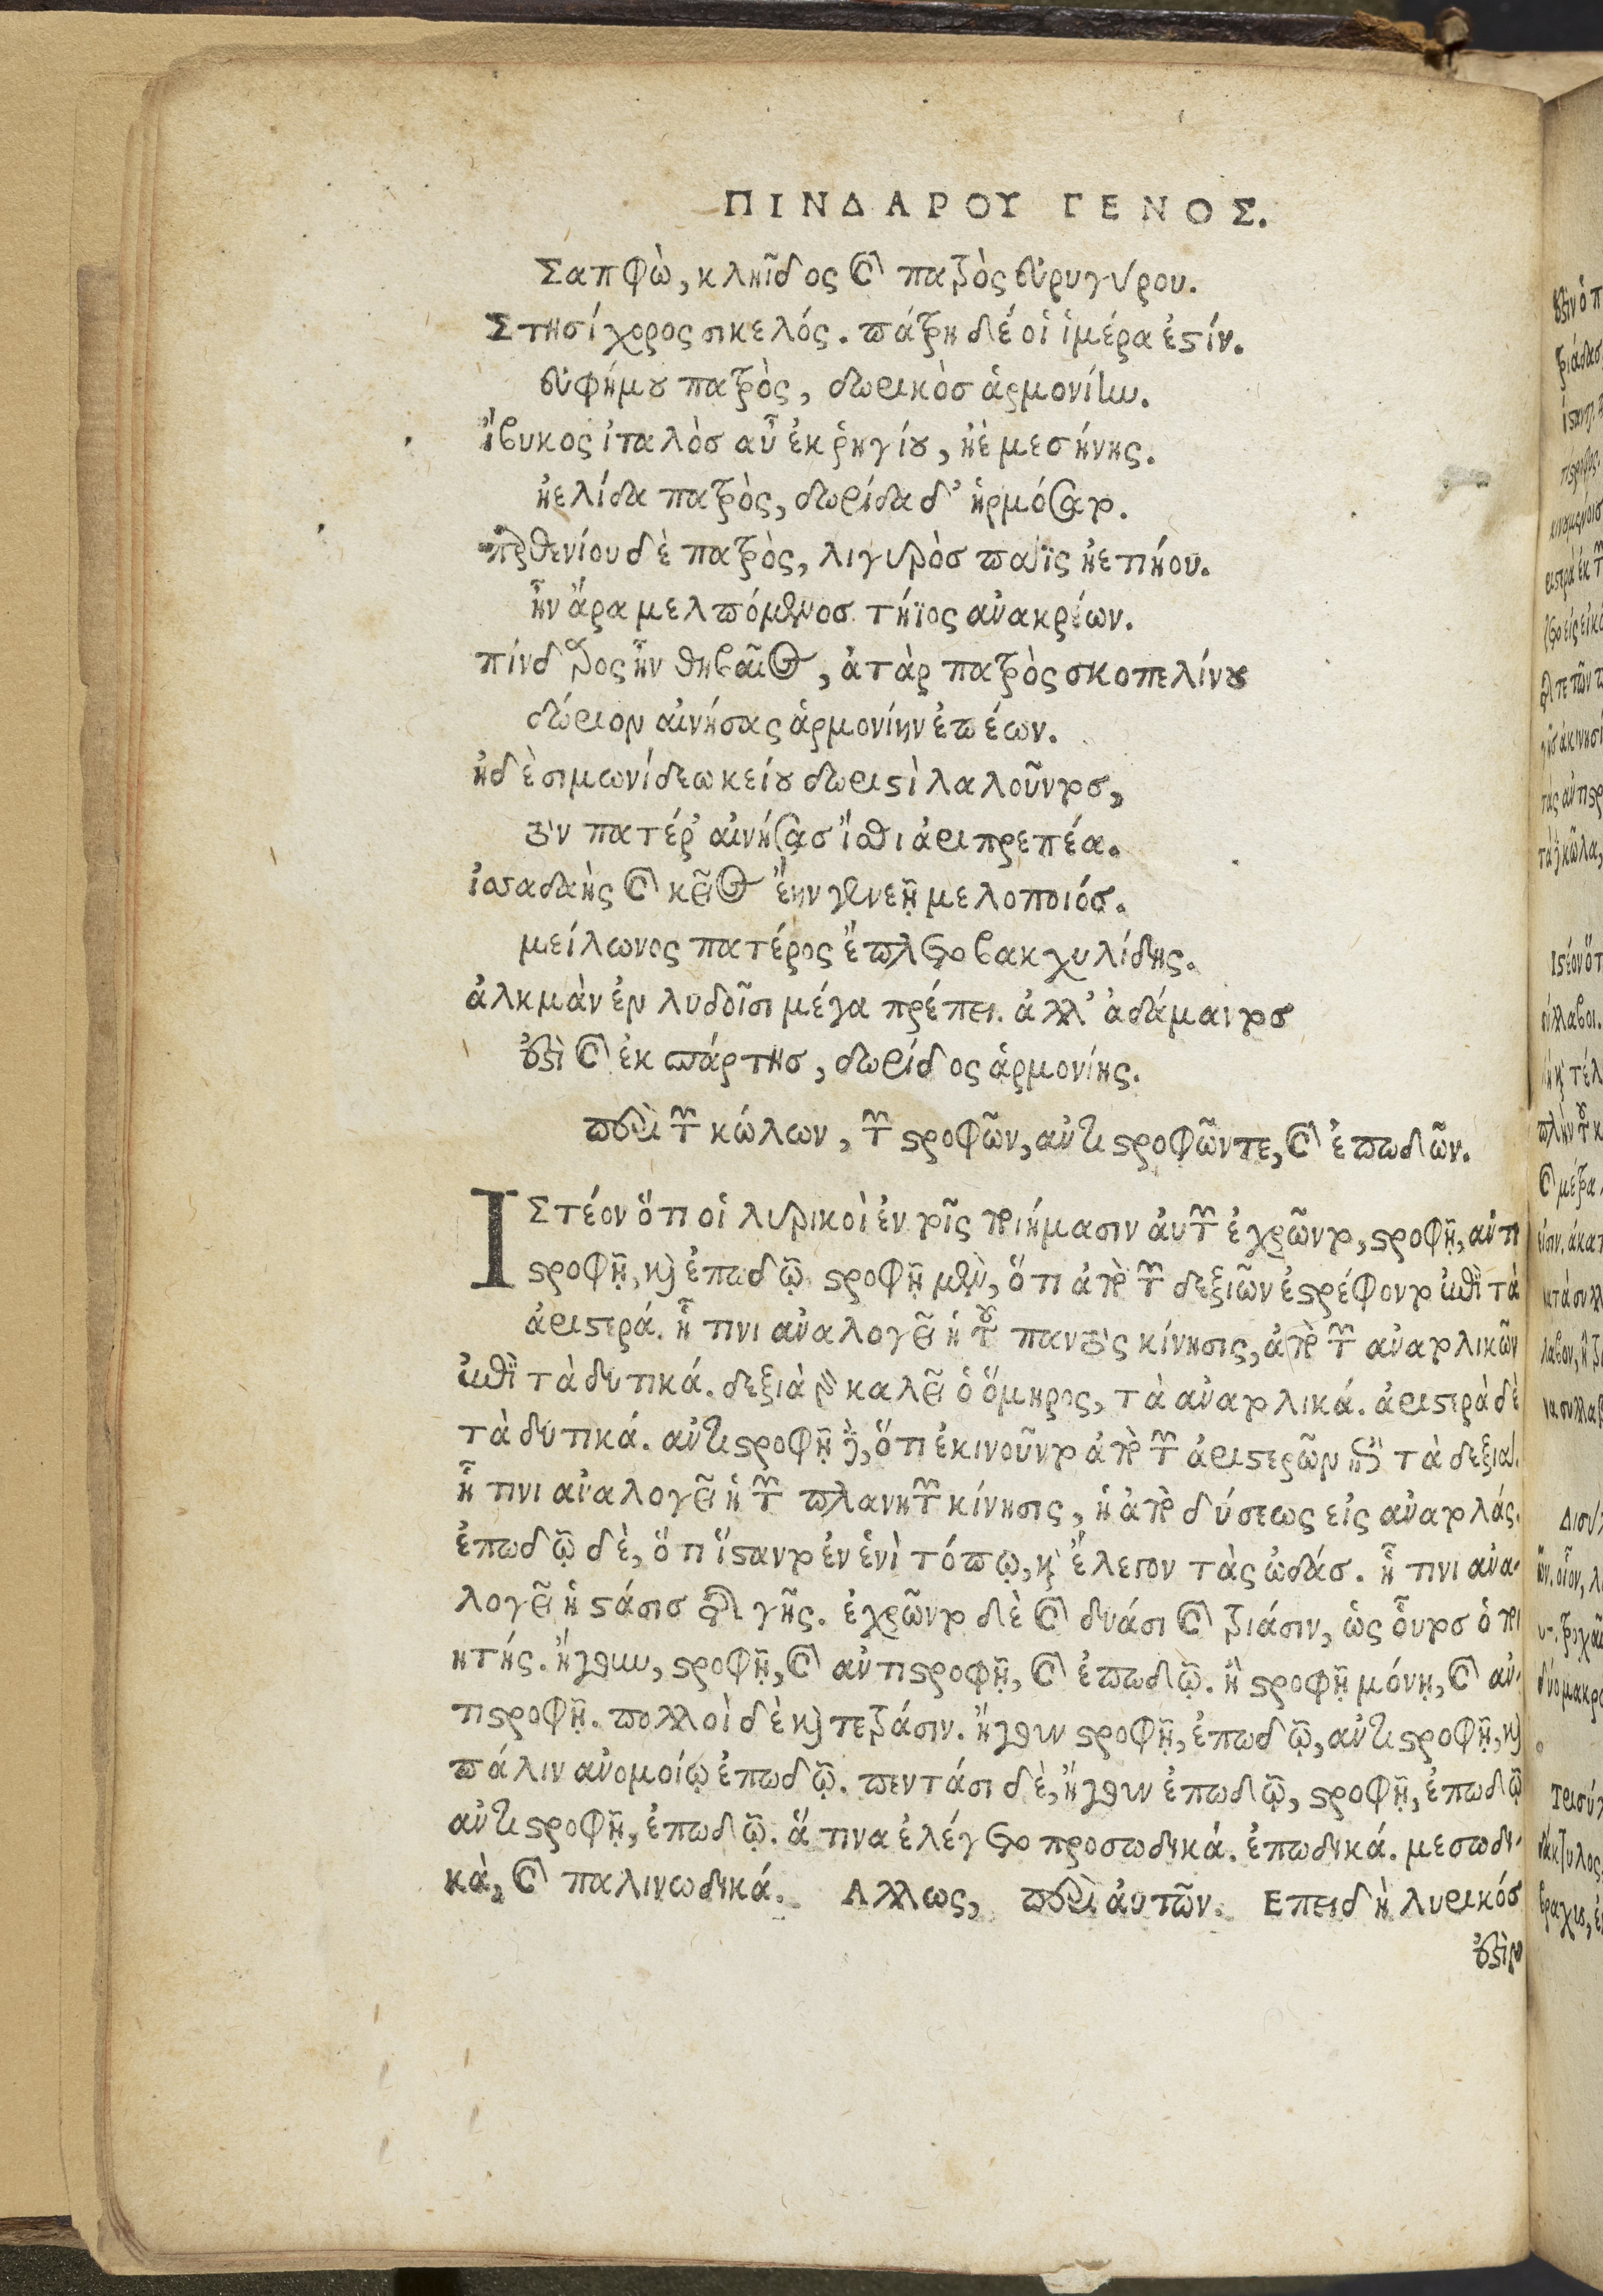 ΠΙΝΔΑΡΟΥ ΓΕΝΟΣ.
Σαπφὼ, κληῗδος καὶ πατρὸς εὐρυγύρου.
Στησίχορος σικελός. πάτρη δέ οἱ ἱμέρα ἐστίν.
εὐφήμου πατρὸς, δωρικὸσ ἁρμονίην.
ἴβυκος ἰταλὸσ αὖ ἐκ ῥηγίου, ἠὲ μεσήνης.
ἠελίδα πατρὸς, δωρίδα δ' ἡρμόσατο.
παρθενίου δὲ πατρὸς, λιγυρὸσ παῖς ἠετιήου.
ἦν ἄρα μελπόμενοσ τήϊος ἀνακρέων.
πίνδαρος ἦν θηβαῖος, ἀτὰρ πατρὸς σκοπελίνου
δώριον αἰνήσας ἁρμονίην ἐπέων.
ἠδὲ σιμωνίδεω κείου δωριστὶ λαλοῦντοσ,
τὸν πατέρ' αἰνήσασ ἴσθι ἀριπρεπέα.
ἰσαδαὴς καὶ κεῖος ἔην γενεῇ μελοποιόσ.
μείλωνος πατέρος ἔπλετο βακχυλίδης.
ἀλκμὰν ἐν λυδοῖσι μέγα πρέπει. ἀλλ' ἀδάμαντοσ
ἐστὶ καὶ ἐκ σπάρτησ, δωρίδος ἁρμονίης.
περὶ τῶν κώλων, τῶν στροφῶν, ἀντιστροφῶν τε, καὶ ἐπωδῶν.
ΙΣτέον ὅτι οἱ λυρικοὶ ἐν τοῖς ποιήμασιν ἀυτῶν ἐχρῶντο, στροφῇ, ἀντι
στροφῇ, καὶ ἐπωδῷ. στροφῇ μὲν, ὅτι ἀπὸ τῶν δεξιῶν ἐστρέφοντο ἐπὶ τὰ
ἀριστερά. ᾗ τινι ἀναλογεῖ ἡ τοῦ παντὸς κίνησις, ἀπὸ τῶν ἀνατολικῶν
ἐπὶ τὰ δυτικά. δεξιὰ γὰρ καλεῖ ὁ ὅμηρος, τὰ ἀνατολικά. ἀριστερὰ δὲ
τὰ δυτικά. ἀντιστροφῇ δὲ, ὅτι ἐκινοῦντο ἀπὸ τῶν ἀριστερῶν ἐπὶ τὰ δεξιά.
ᾗ τινι ἀναλογεῖ ἡ τῶν πλανητῶν κίνησις, ἡ ἀπὸ δύσεως εἰς ἀνατολάς.
ἐπωδῷ δὲ, ὅτι ἵσταντο ἐν ἑνὶ τόπῳ, καὶ ἔλεγον τὰς ὠδάσ. ᾗ τινι ἀνα-
λογεῖ ἡ στάσισ τῆς γῆς. ἐχρῶντο δὲ καὶ δυάσι καὶ τριάσιν, ὡς οὗτοσ ὁ ποι
ητής. ἤγουν, στροφῇ, καὶ ἀντιστροφῇ, καὶ ἐπωδῷ. ἢ στροφῇ μόνῃ, καὶ ἀν-
τιστροφῇ. πολλοὶ δὲ καὶ τετράσιν. ἤγουν στροφῇ, ἐπωδῷ, ἀντιστροφῇ, καὶ
πάλιν ἀνομοίῳ ἐπωδῷ. πεντάσι δὲ, ἤγουν ἐπωδῷ, στροφῇ, ἐπωδῷ
ἀντιστροφῇ, ἐπωδῷ. ἅ τινα ἐλέγετο προσωδικά. ἐπωδικά. μεσωδι-
κὰ, καὶ παλινωδικά. Αλλως, περὶ ἀυτῶν. Επειδὴ λυρικόσ
ἐστιν